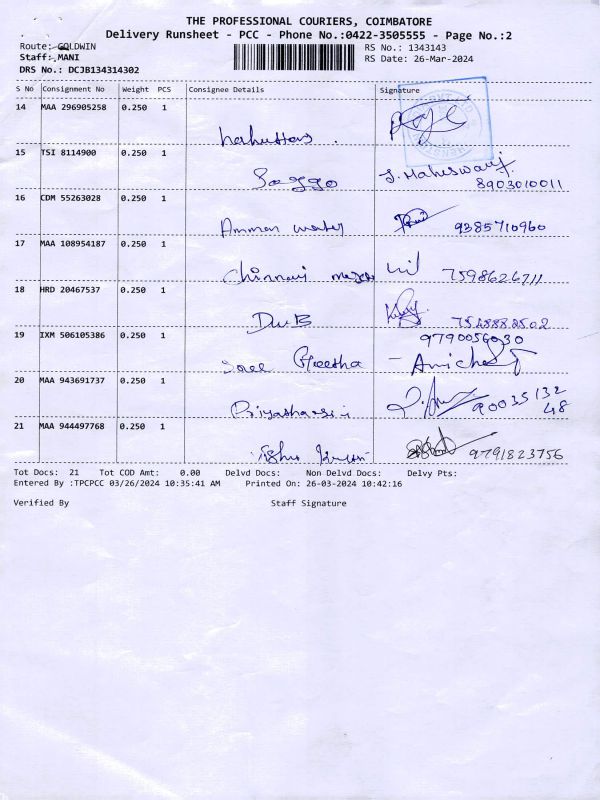 THE PROFESSIONAL COURIERS, COIMBATORE
Delivery Runsheet - PCC - Phone No.:0422-3505555 - Page No.:2
Route: GOLDWIN
RS No.: 1343143
Staff: MANI
RS Date: 26-Mar-2024
DRS No.: DCJB134314302
S No Consignment No Weight PCS Consignee Details Signature
14 MAA 296905258 0.250 1
15 TSI 8114900 0.250 1
Saggo J. Maheswari
8903010011
16 CDM 55263028 0.250 1
Amman 9385710960
17 MAA 108954187 0.250 1
Chinnari 7598626711
18 HRD 20467537 0.250 1
DuB
19 IXM 506105386 0.250 1
Sree Geetha
20 MAA 943691737 0.250 1
Priyadharsini 90035132
48
21 MAA 944497768 0.250 1
9791823756
Tot Docs: 21 Tot COD Amt: 0.00 Delvd Docs: Non Delvd Docs: Delvy Pts:
Entered By :TPCPCC 03/26/2024 10:35:41 AM Printed On: 26-03-2024 10:42:16
Verified By Staff Signature